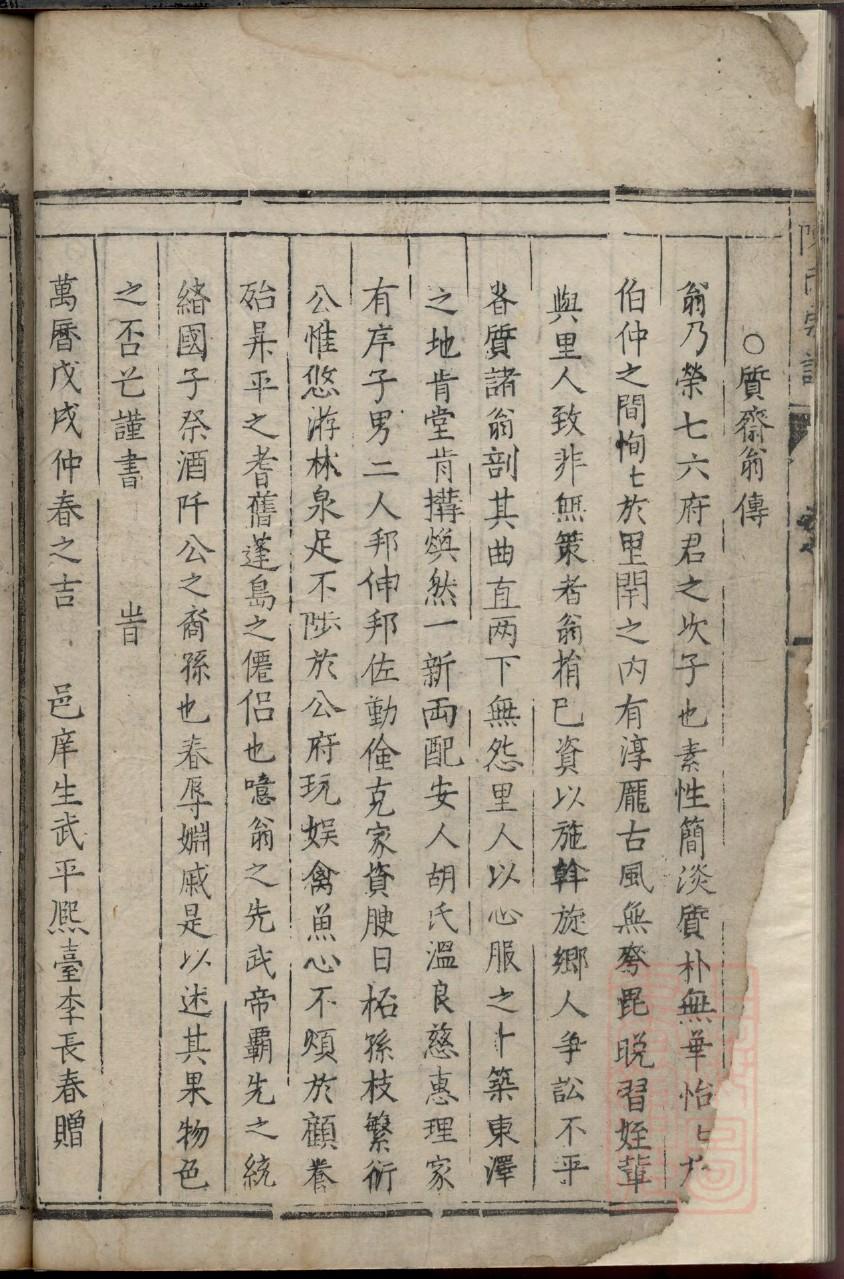 陳氏宗譜
○質齋翁傳
翁乃榮七六府君之次子也素性簡淡質朴無華怡匕於
伯仲之間恂匕於里閈之内有淳龐古風無夸毘晚習姪輩
與里人致非無策者翁捐已資以施斡旋鄉人爭訟不平
者質諸翁剖其曲直两下無怨里人以心服之卜築東澤
之地肯堂肯搆煥然一新両配安人胡氏溫良慈惠理家
有序子男二人邦伸邦佐勤儉克家貲腴日柘孫枝繁衍
公惟悠游林泉足不陟於公府玩娱禽魚心不煩於顧養
殆昇平之耆舊蓬島之僊侣也噫翁之先武帝霸先之統
緒國子祭酒阡公之裔孫也春辱婣戚是以述其果物色
之否乞謹書 旹
萬曆戊戌仲春之吉 邑庠生武平熈臺李長春贈